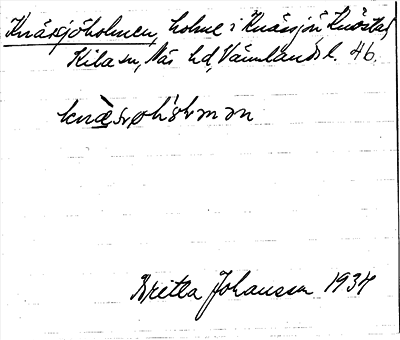 Knäsjöholmen, holme i Knäsjön Knöstad
Kila sn, Näs hd, Värmlands l. 46.
Britta Johansson 1934